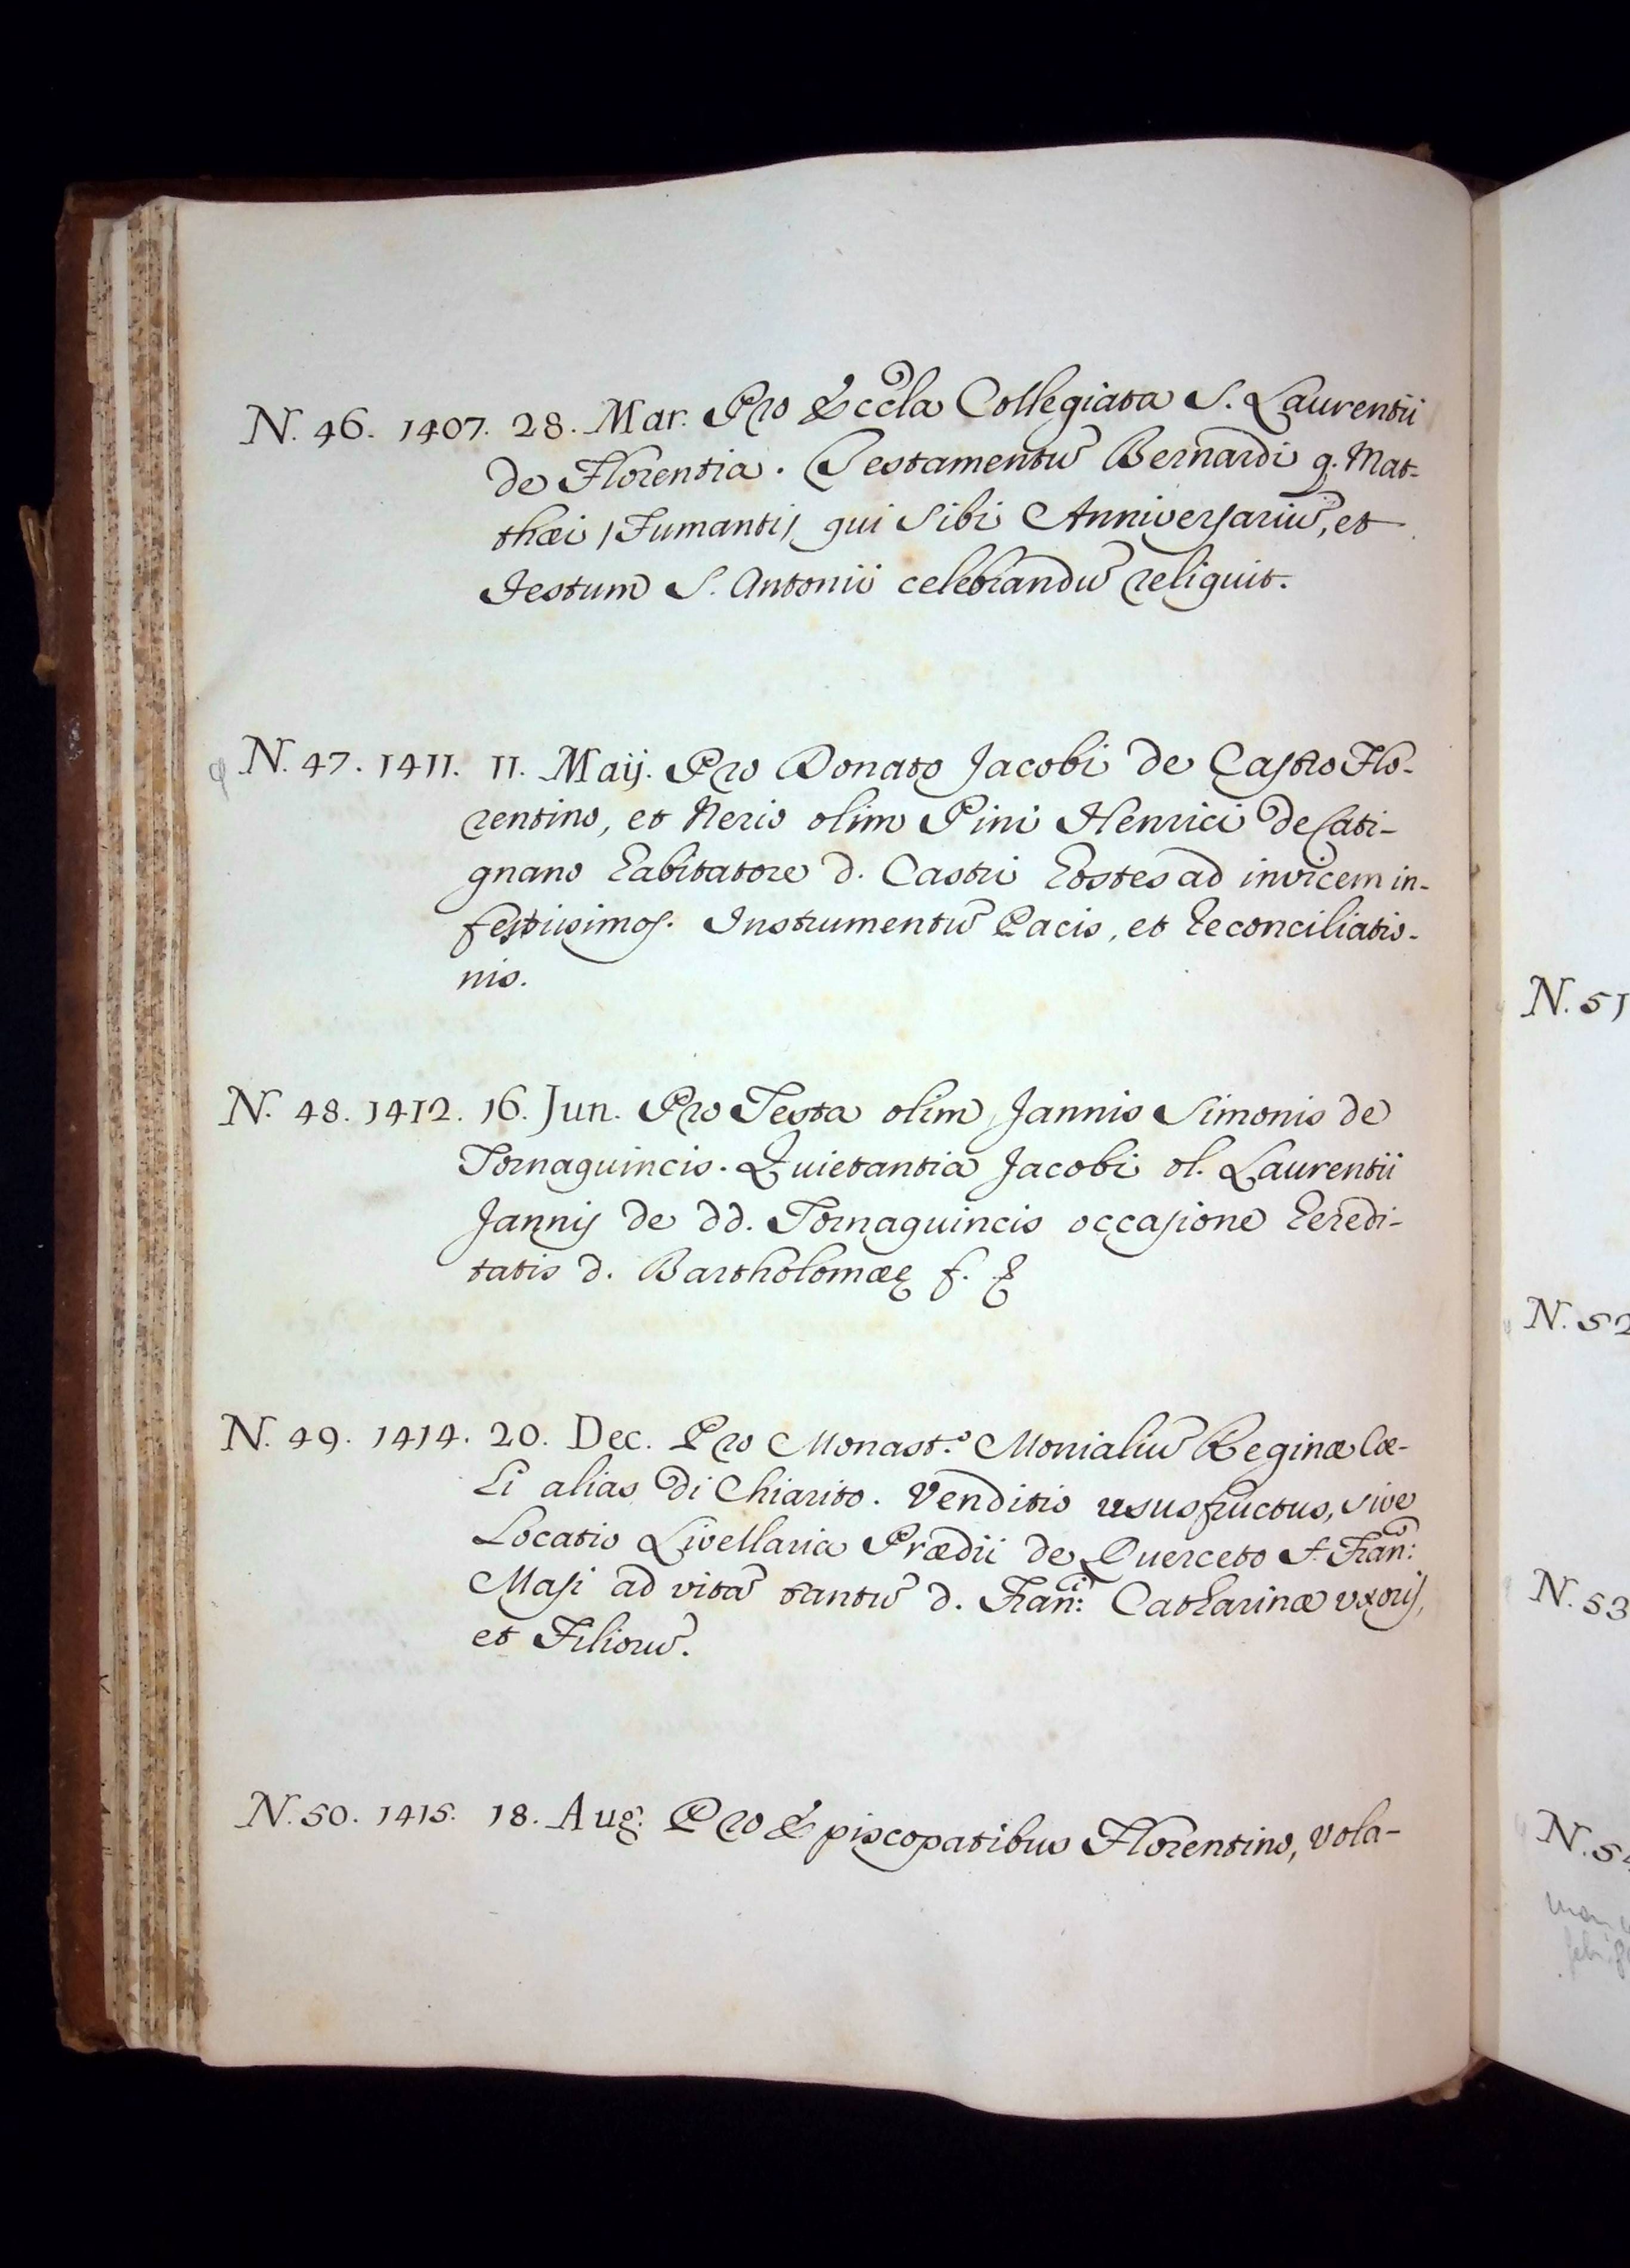 N. 46. 1407. 28. Mar. Pro Eccla Collegiata S. Laurentii
de Florentia. Testamentũ Bernardi q. Mat-
thæi /Fumanti/ qui sibi Anniversariũ, et
Festum S. Antonii celebrandũ reliquit.
N. 47. 1411. 11. Maij. Pro Donato Jacobi de Castro Flo-
rentino, et Nerio olim Pini Henrici de Cati-
gnano habitatore d. Castri hostes ad invicem in-
festissimos. Instrumentũ Pacis, et reconciliatio-
nis.
N. 48. 1412. 16. Jun. Pro Testa olim Jannis Simonis de
Tornaquincis. Quietantia Jacobi ol. Laurentii
Jannis de dd. Tornaquincis occasione heredi-
tatis d. Bartholomæę f. &
N. 49. 1414. 20. Dec. Pro Monast.º Monialiũ Reginæ Cœ-
li alias di Chiarito. Venditio ususfructus, sive
Locatio Livellaria Prædii de Querceto f. Fran:
Masi ad vitã tantũ d. Fran:ci Catharinæ uxoris,
et Filiorũ.
N. 50. 1415. 18. Aug. Pro Episcopatibus Florentino, Vola-
N. 51
N. 52
N. 53
N. 54